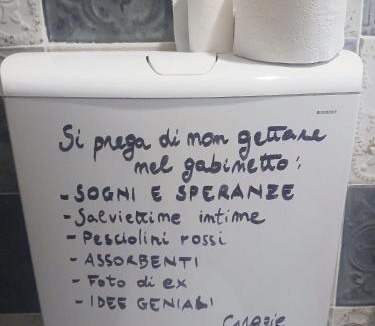 Si prega di non gettare
nel gabinetto:
- SOGNI E SPERANZE
- Salviettine intime
- Pesciolini rossi
- ASSORBENTI
- Foto di ex
- IDEE GENIALI
Grazie